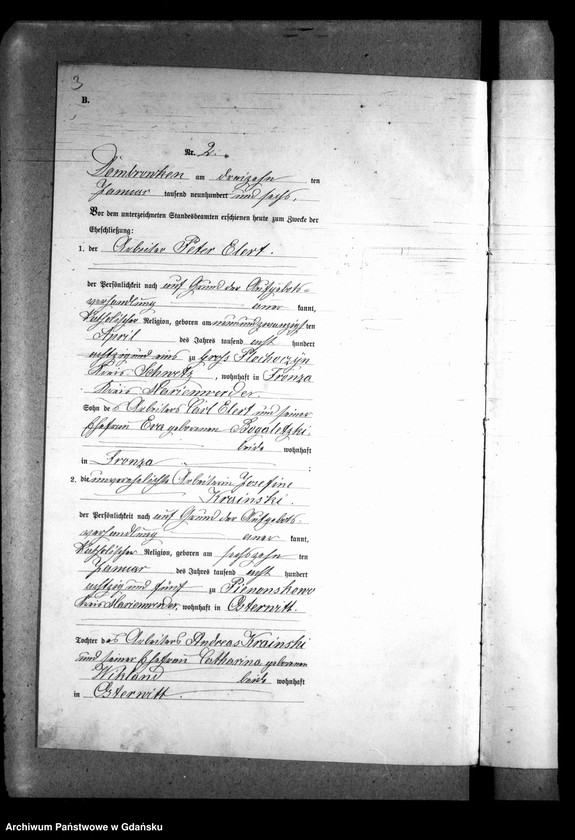 3
B.
Nr. 2.
Dombrowken am dreizehn ten
Januar tausend neunhundert und sechs.
Vor dem unterzeichneten Standesbeamten erschienen heute zum Zwecke der
Eheschließung:
1. der Arbeiter Peter Elert.
der Persönlichkeit nach auf Grund der Aufgebots=
verhandlung aner kannt,
katholischer Religion, geboren am neunundzwanzigs ten
April des Jahres tausend acht hundert
achtzig und eins zu Gross Plochoczyn
Kreis Schwetz, wohnhaft in Fronza
Kreis Marienwerder.
Sohn des Arbeiters Carl Elert und seiner
Ehefrau Eva geborenen Bogaletzki.
beide wohnhaft
in Fronza
2. die unverehelichte Arbeiterin Josefine
Krainski.
der Persönlichkeit nach auf Grund der Aufgebots-
verhandlung aner kannt,
katholischer Religion, geboren am sechszehn ten
Januar des Jahres tausend acht hundert
achtzig und fünf zu Pienonskowo
Kreis Marienwerder, wohnhaft in Osterwitt.
Tochter des Arbeiters Andreas Krainski
und seiner Ehefrau Catharina geborenen
beide wohnhaft
in Osterwitt
Archiwum Państwowe w Gdańsku